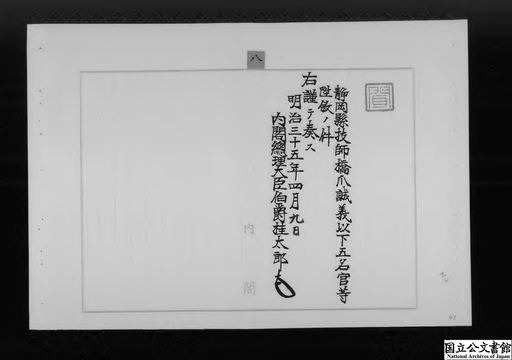 八
静岡縣技師橋爪誠義以下五名官等
陞敘ノ件
右謹テ奏ス
明治三十五年四月九日
内閣總理大臣伯爵桂太郎
内閣
国立公文書館
National Archives of Japan